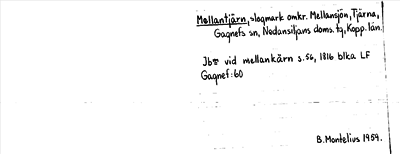 Mellantjärn, slogmark omkr. Mellansjön, Tjärna,
Gagnefs sn, Nedansiljans doms. tg, Kopp. län.
vid mellankärn s. 56, 1816 blka LF
Gagnef: 60
B. Montelius 1959.